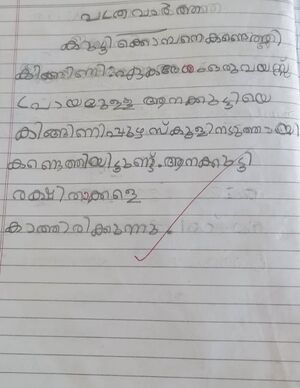 പത്രവാർത്ത
കുട്ടിക്കൊമ്പനെ കണ്ടെത്തി
കിങ്ങിണിപ്പുഴ: ഒരു വയസ്സ്
പ്രായമുള്ള ആനക്കുട്ടിയെ
കിങ്ങിണിപ്പുഴ സ്കൂളിനടുത്തായി
കണ്ടെത്തിയിട്ടുണ്ട്. ആനക്കുട്ടി
രക്ഷിതാക്കളെ
കാത്തിരിക്കുന്നു.